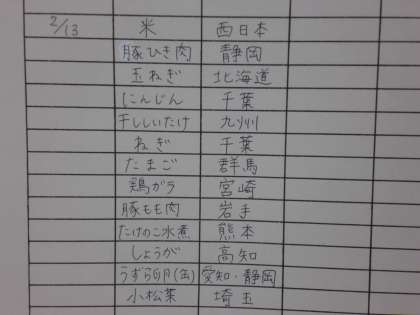 2/13 米 西日本
豚ひき肉 静岡
玉ねぎ 北海道
にんじん 千葉
干ししいたけ 九州
ねぎ 千葉
たまご 群馬
鶏ガラ 宮崎
豚もも肉 岩手
たけのこ水煮 熊本
しょうが 高知
うずら卵(缶) 愛知・静岡
小松菜 埼玉